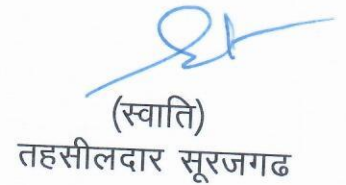 (स्वाति)
तहसीलदार सूरजगढ